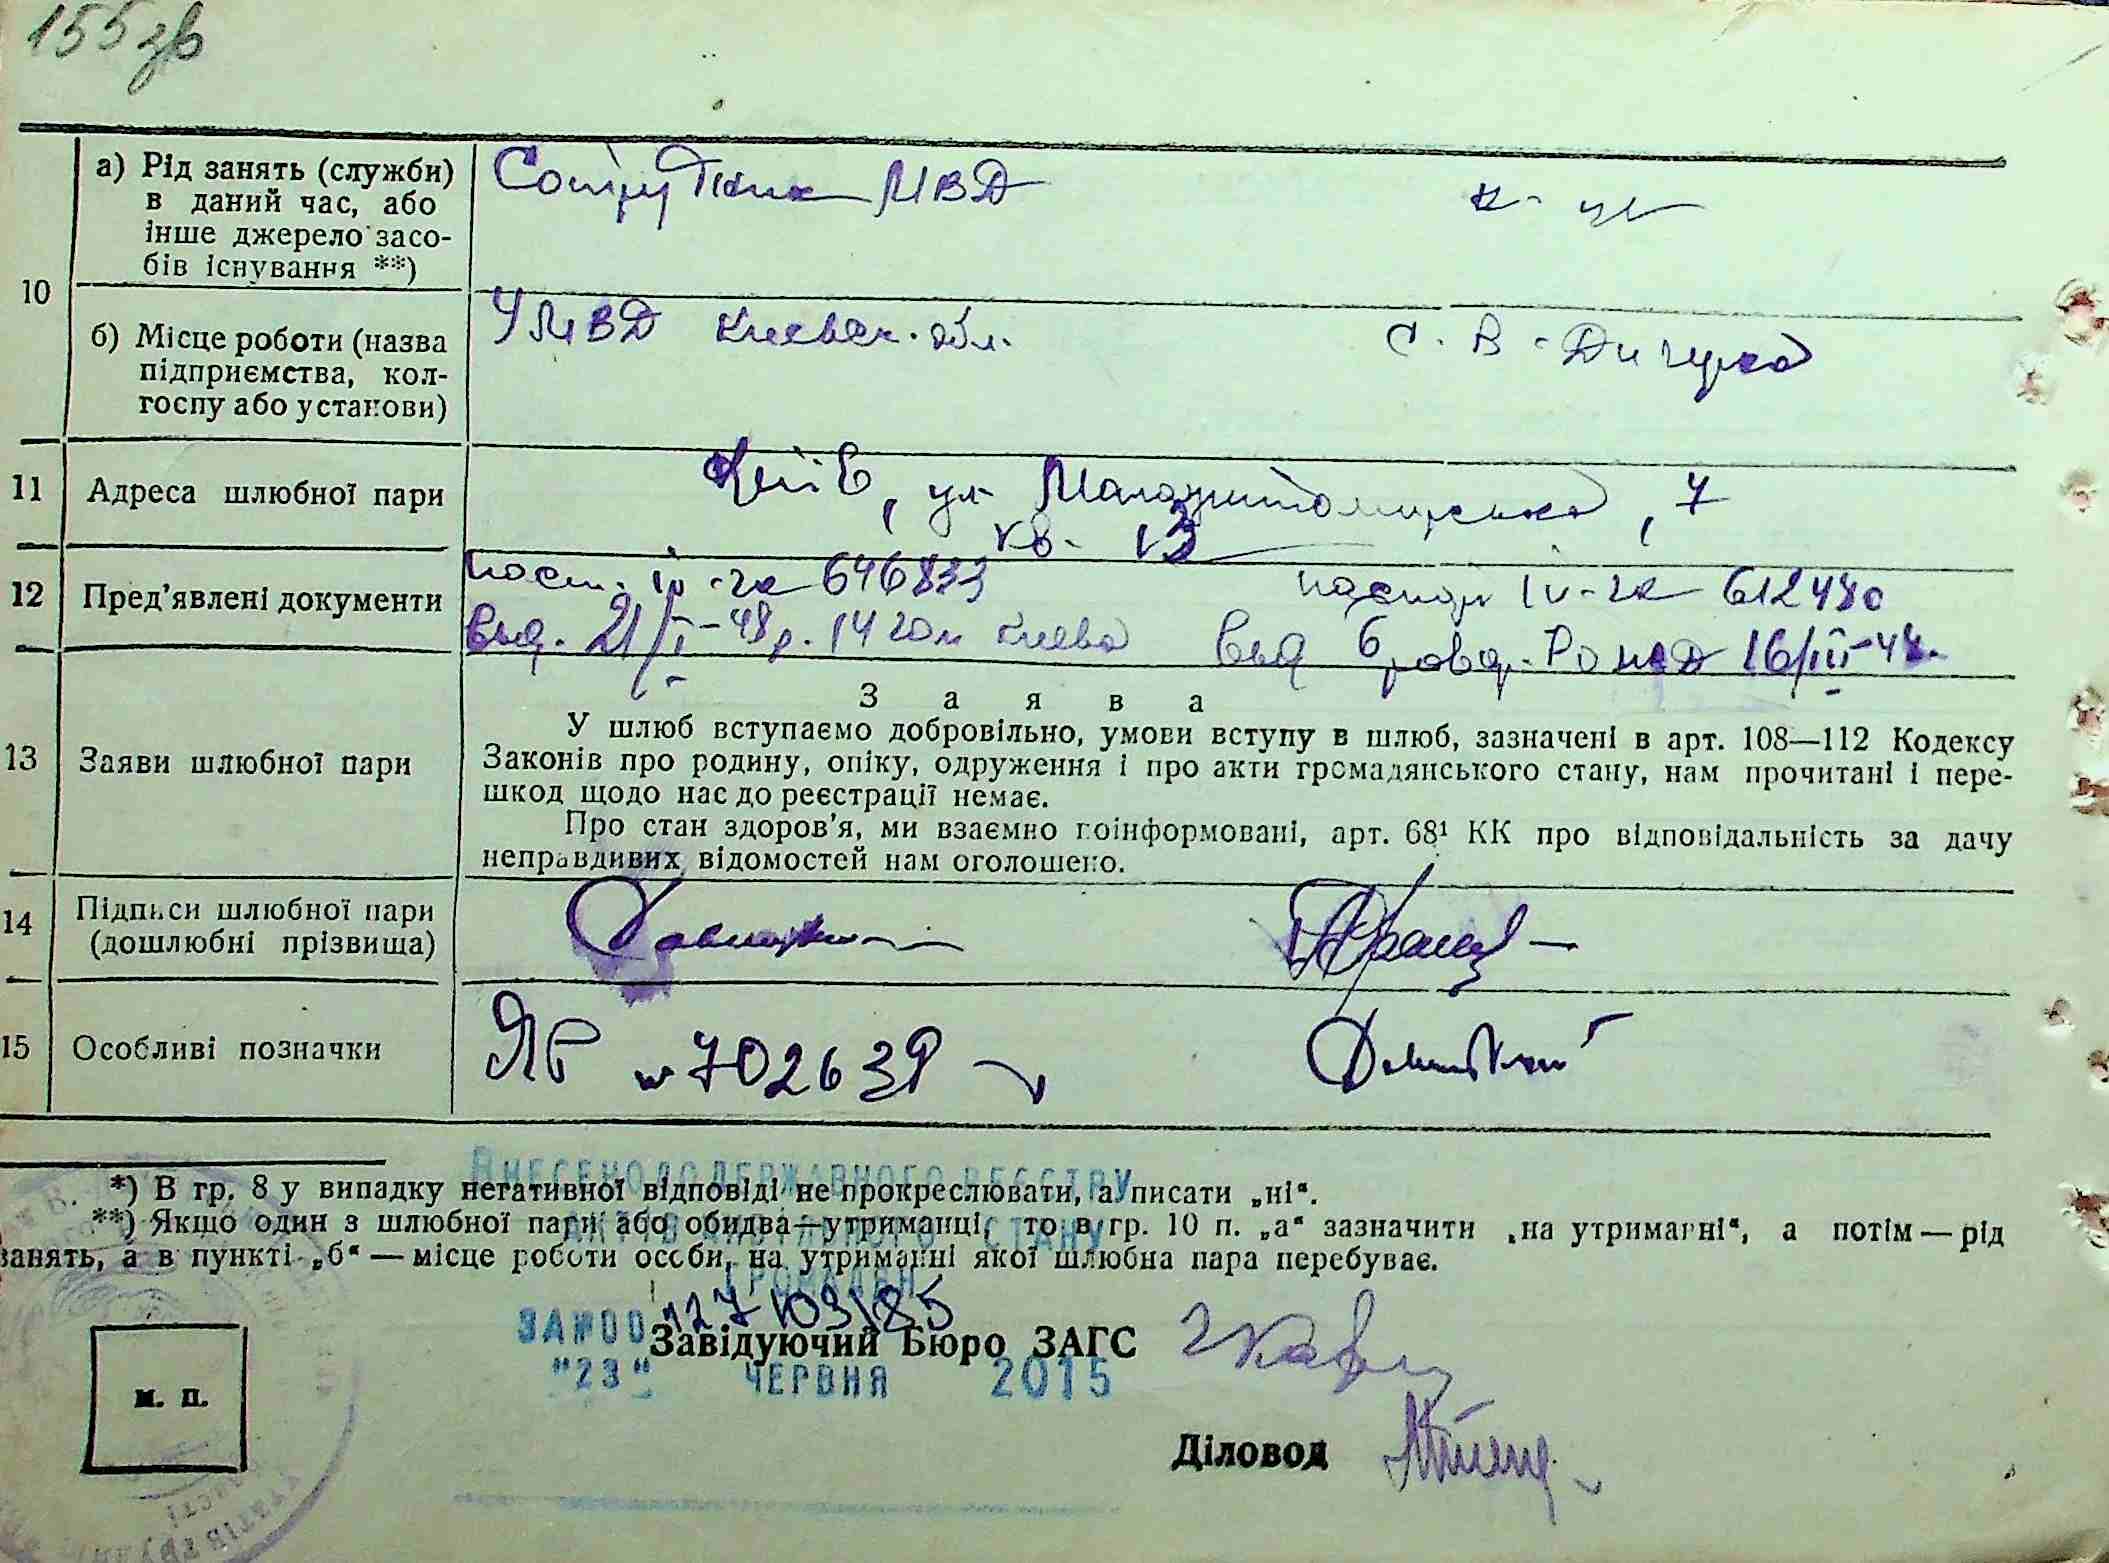 155 зв
10
а) Рід занять (служби)
в даний час, або
інше джерело засо-
бів існування **)
Сотрудник МВД
б) Місце роботи (назва
підприємства, кол-
госпу або установи)
УМВД Киевск. обл.
С. В-Димерка
11
Адреса шлюбної пари
Київ, ул. Маложитомирська, 7
кв. 13
12
Пред'явлені документи
пасп. IV-га 646833
паспорт IV-га 612480
выд. 21/I-48р. 14 гом Киева
выд Бровар. Ро МВД 16/III-48.
13
Заяви шлюбної пари
Заява
У шлюб вступаємо добровільно, умови вступу в шлюб, зазначені в арт. 108—112 Кодексу
Законів про родину, опіку, одруження і про акти громадянського стану, нам прочитані і пере-
шкод щодо нас до реєстрації немає.
Про стан здоров'я, ми взаємно поінформовані, арт. 68¹ КК про відповідальність за дачу
неправдивих відомостей нам оголошено.
14
Підписи шлюбної пари
(дошлюбні прізвища)
15
Особливі позначки
ЯР № 702639
*) В гр. 8 у випадку негативної відповіді не прокреслювати, а писати „ні“.
**) Якщо один з шлюбної пари або обидва—утриманці, то в гр. 10 п. „а“ зазначити „на утриманні“, а потім — рід
занять, а в пункті „б“ — місце роботи особи, на утриманні якої шлюбна пара перебуває.
ВНЕСЕНО ДО ДЕРЖАВНОГО РЕЄСТРУ
АКТІВ ЦИВІЛЬНОГО СТАНУ
ГРОМАДЯН
ЗА №00127103185
"23" ЧЕРВНЯ 2015
Завідуючий Бюро ЗАГС
м. п.
Діловод